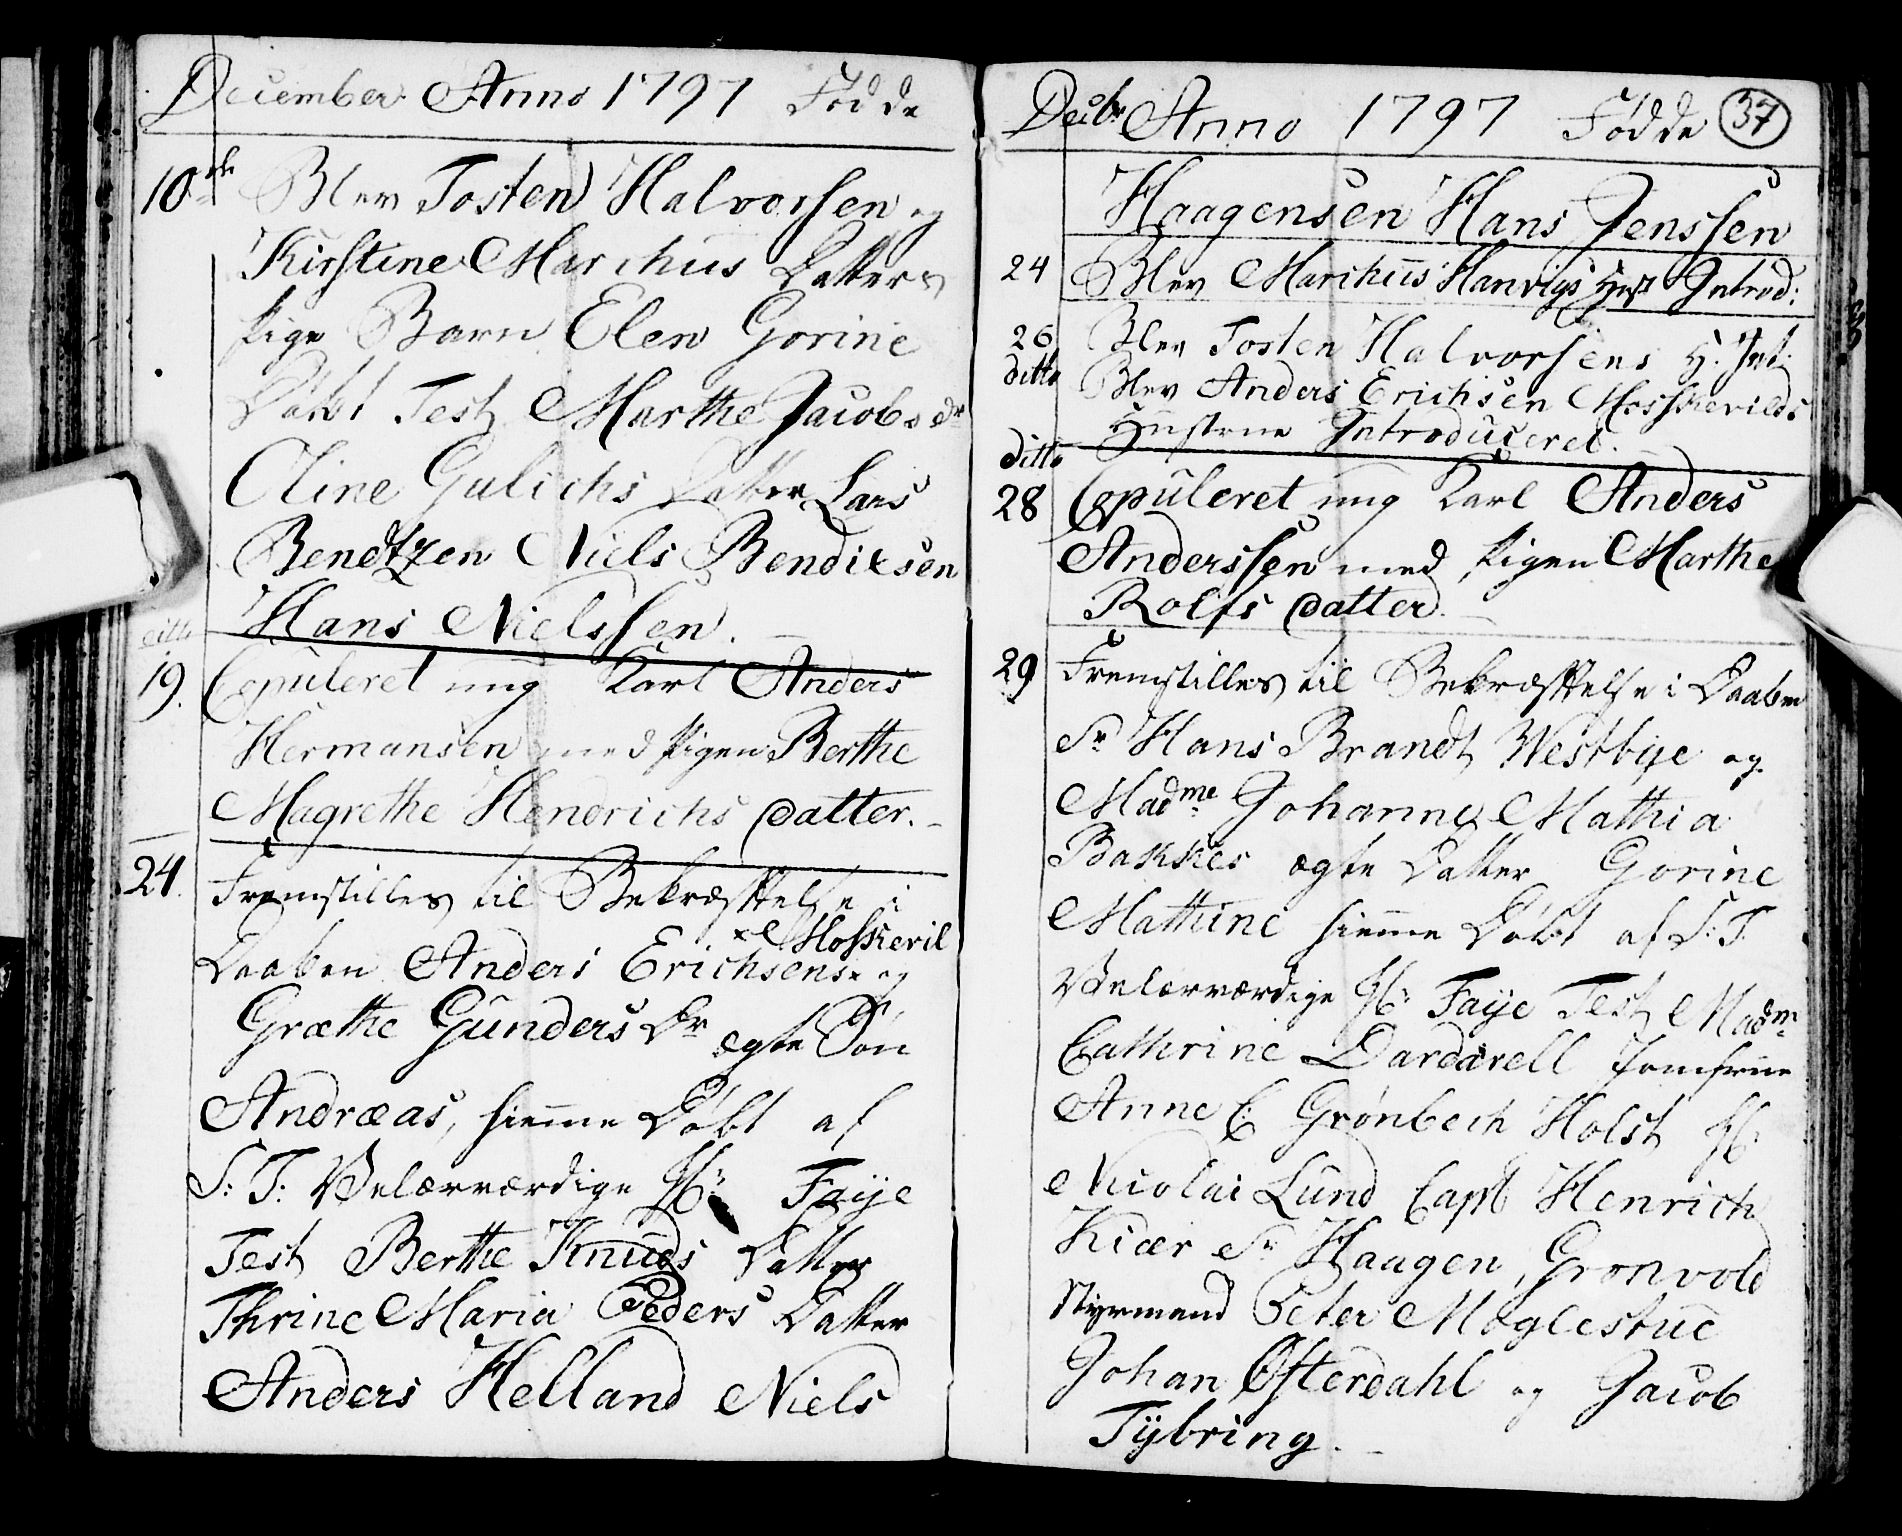 December Anno 1797 Fødde
10de Blev Tosten Halvorsen og
Kirstine Marchus Datters
Pige Barn Elen Gorine
Døbt Test Marthe Jacobs dr
Oline Gulichs Datter Lars
Bendtzen Niels Bendixsen
Hans Nielssen.
ditto
19. Copuleret ung Karl Anders
Hermansen med Pigen Berthe
Magrethe Hendrichs Datter.
24. Fremstilles til Bekræftelse i
x Mosskevil
Daaben Anders Erichsens x og
Græthe Gunders Dr ægte Søn
Andræas, hiemme Døbt af
S: T: Velærværdige Hr: Faÿe
Test Berthe Knuds Datter
Thrine Maria Peders Datter
Anders Helland Niels
Decbr Anno 1797 Fødde 37
Haagensen Hans Jenssen
24 Blev Marchus Hanvigs Hust Introd:
26 Blev Tosten Halvorsens H: Int:
ditto Blev Anders Erichsen Mosskevilds
Hustrue Introduceret.
ditto
28 Copuleret ung Karl Anders
Anderssen med Pigen Marthe
Rolfs Datter.
29 Fremstilles til Bekræftelse i Daaben
Sr Hans Brandt Westbÿe og
Madme Johanne Mathia
Bakkes ægte Datter Gorine
Mathine hiemme Døbt af S: T.
Velærværdige Hr: Faÿe Test Madme
Cathrine Dardarell Jomfrue
Anne C: Grønbech Holst Hr:
Nicolai Lund Capt Henrich
Kiær Sr Haagen Gronvold
Styrmand Peter Møglestue
Johan Østerdahl og Jacob
Tÿbring.